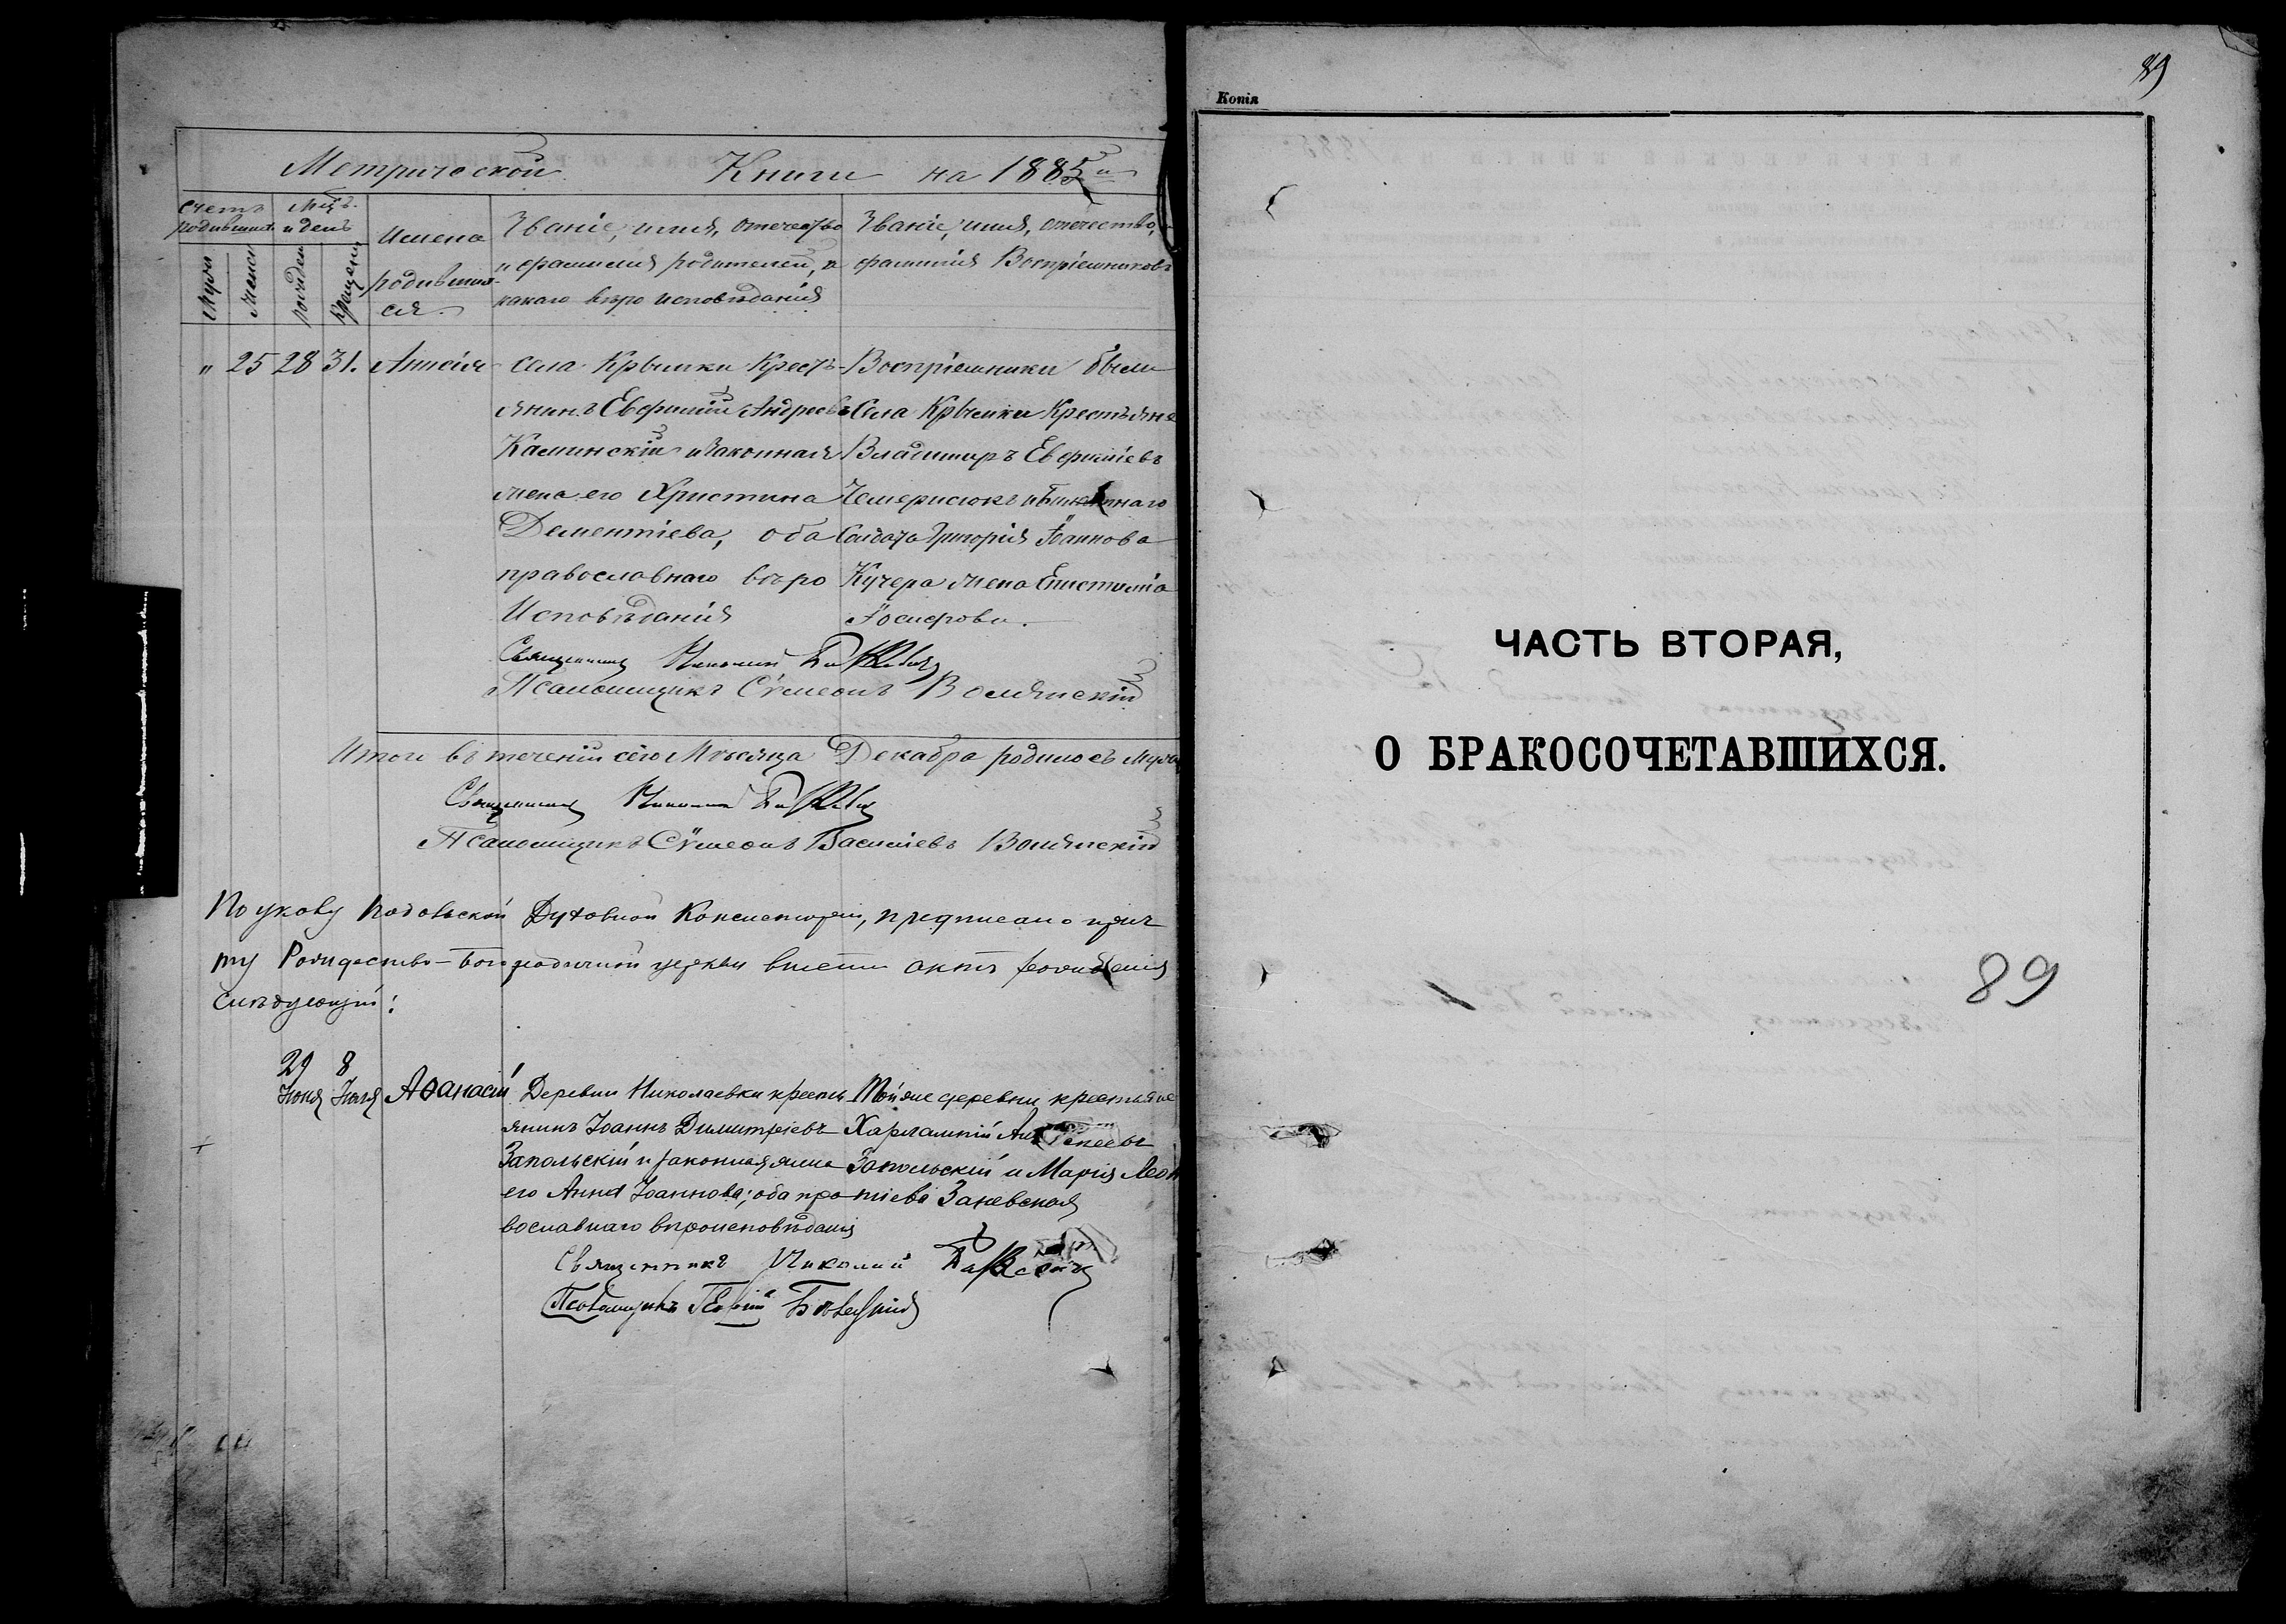 Метрической Книги на 1885 й
Счетъ родившихъ
Мцъ. и день
Мужи
Женск
рожден
Крещени
Имена родившихся.
Званіе, имя, отечество и фамилия родителей, и какаго вѣро исповѣданія
Званіе, имя, отечество, фамилія Воспріемниковъ
" 25 28 31. Анисія
села Крымки Кресть-
янинъ Евфимій Андреевъ
Каминскій и законная
жена его Христина
Дементіева, оба
православнаго вѣро
Исповѣданія
Воспріемники были
Села Крымки Крестьяне
Владимиръ Евфиміевъ
Чемерисюкъ и
Солдата Григорія Іоаннова
Кучера жена Епистимія
Іосифова.
Священникъ Николай
Псаломщикъ Сѵмеонъ Волянскій
Итого въ теченіи сего Мѣсяца Декабря родилось муж
Священникъ Николай
Псаломщикъ Сѵмеонъ Васильевъ Волянскій
По указу Подольской Духовной Консисторіи, предписано прич
ту Рождество-Богородичной церкви внести актъ рожденія
слѣдующій:
29 8
Іюня Іюля Аѳанасій
Деревни Николаевки кресть
янинъ Іоаннъ Димитріевъ
Запольскій и законная жена
его Анна Іоаннова; оба пра
вославнаго вѣроисповѣданія
Той же деревни крестьяне
Харлампій
Запольскій и Марія Леон
тіева Заневская
Священникъ Николай
Псаломщикъ
Копія
89
ЧАСТЬ ВТОРАЯ,
О БРАКОСОЧЕТАВШИХСЯ.
89